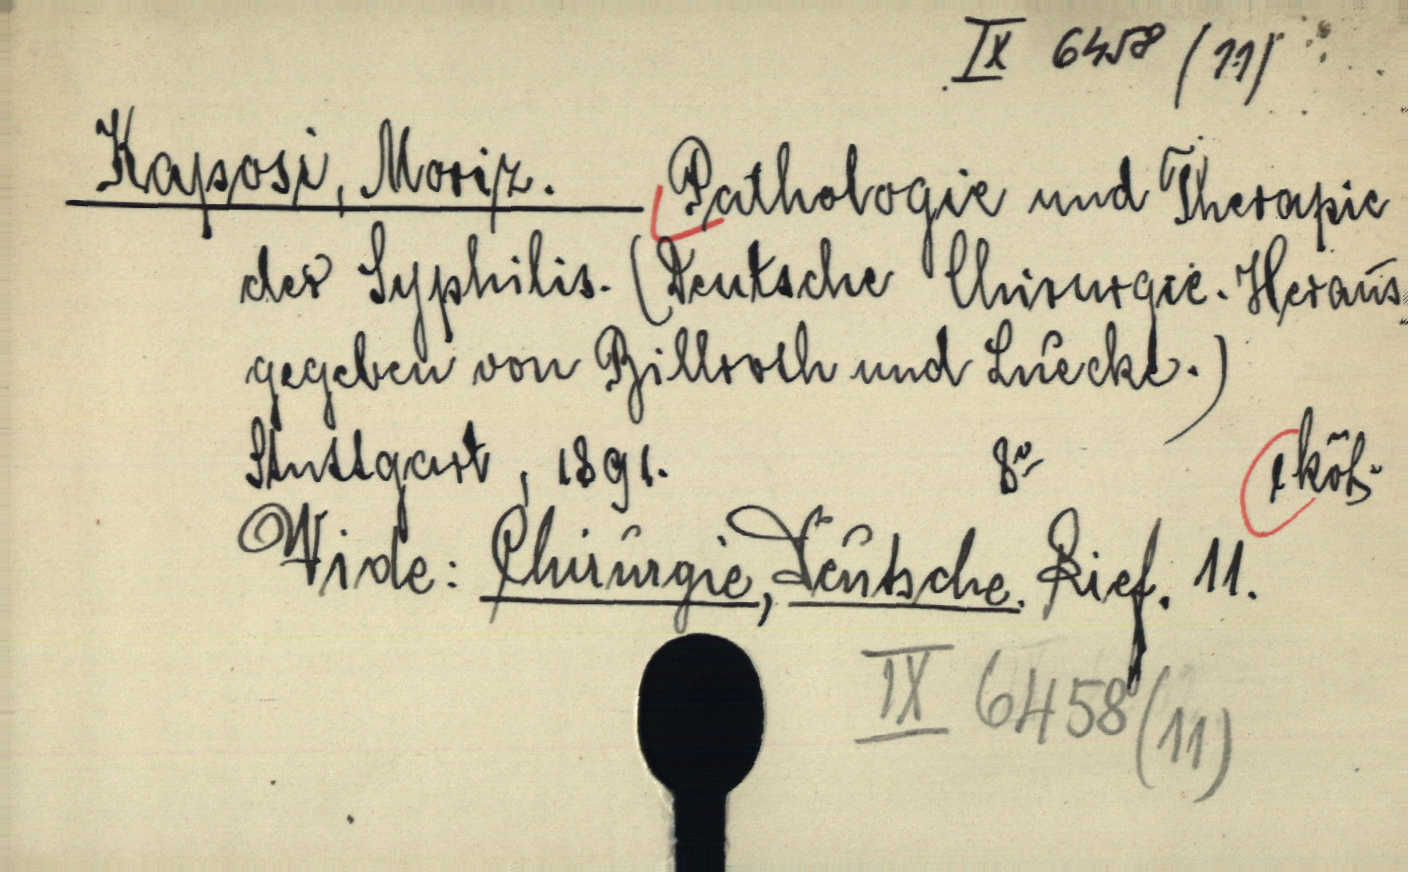 IX 6458 (11)
Kaposi, Moriz. Pathologie und Therapie
der Syphilis. (Deutsche Chirurgie. Heraus-
gegeben von Billroth und Luecke.)
Stuttgart, 1891. 8° 1 köt.
Vide: Chirurgie, Deutsche. Lief. 11.
IX 6458 (11)